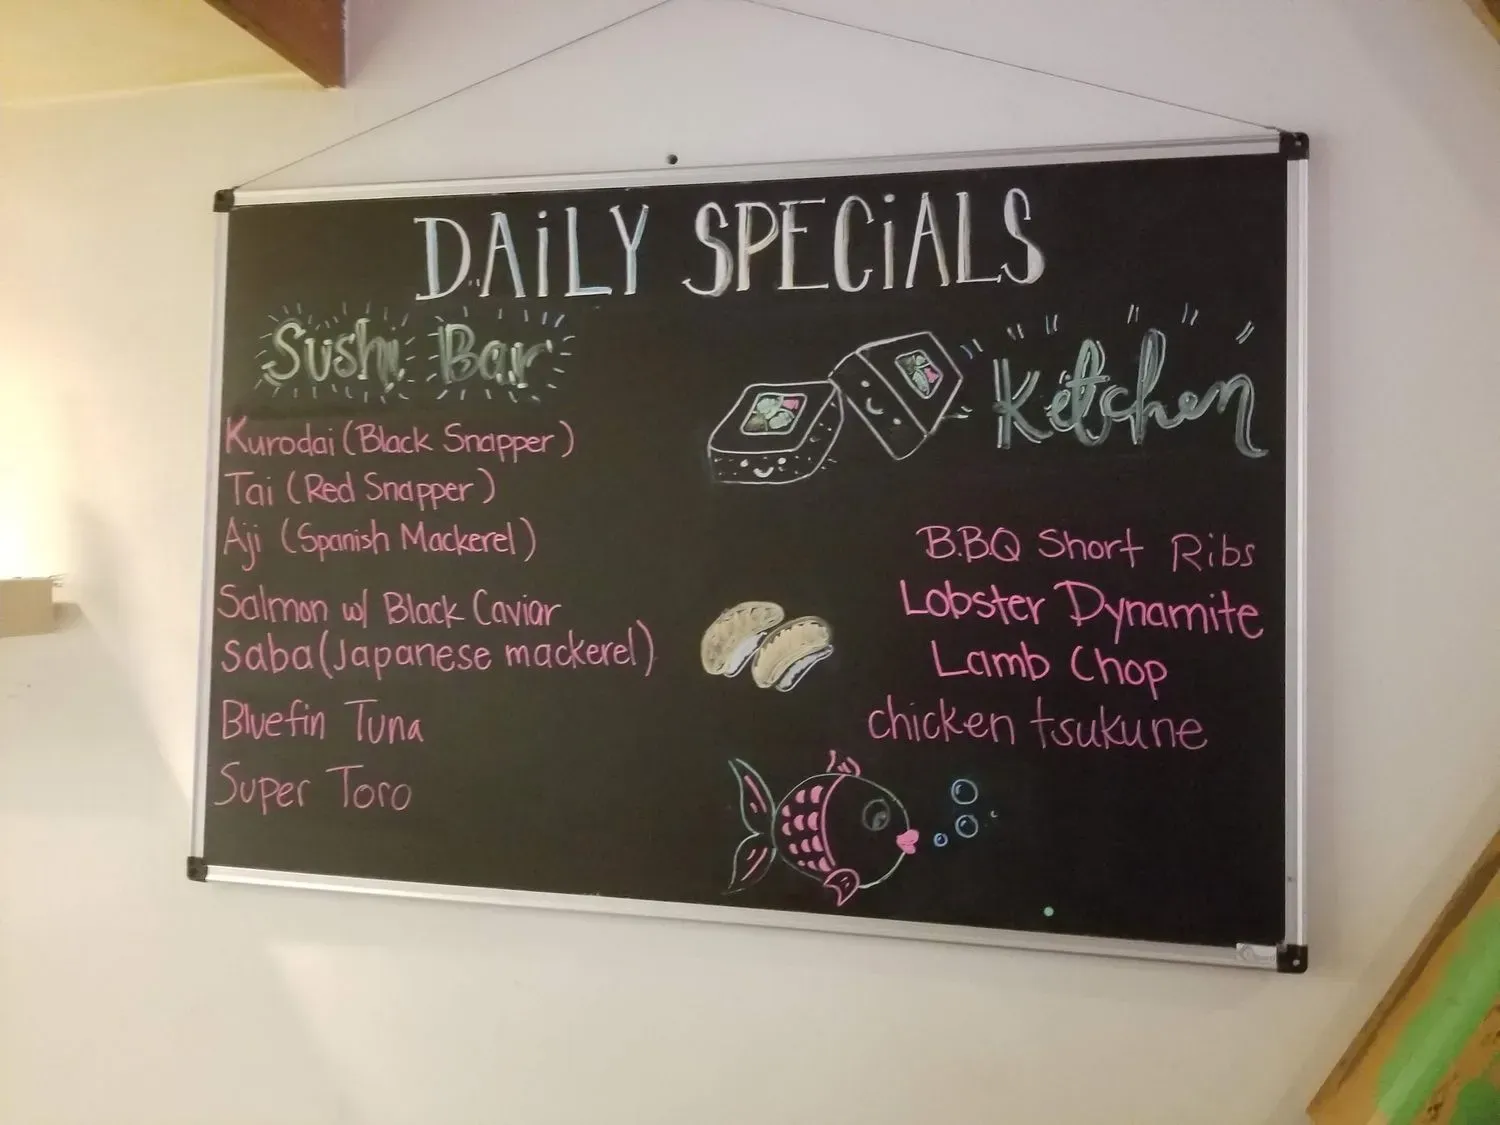 DAiLY SPECiALS
Sushi Bar
Kurodai (Black Snapper)
Tai (Red Snapper)
Aji (Spanish Mackerel)
Salmon w/ Black Caviar
Saba (Japanese mackerel)
Bluefin Tuna
Super Toro
Kitchen
B.BQ Short Ribs
Lobster Dynamite
Lamb Chop
chicken tsukune